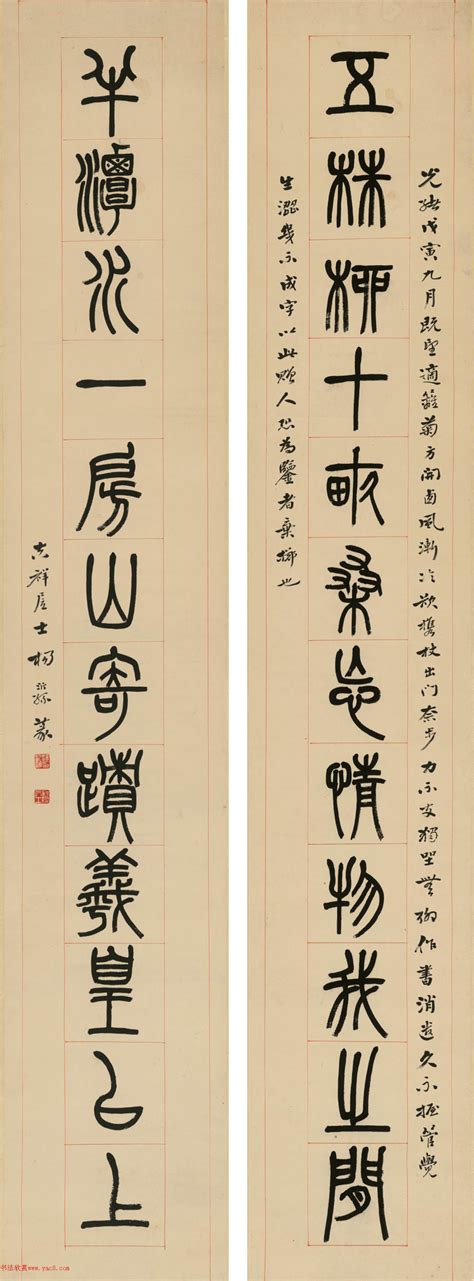 五株柳十畝桑忘情物我之間
光緒戊寅九月既望適籬菊方開西風漸冷欲攜杖出門奈步力不支獨坐無聊作書消遣久不握管覺
生澀幾不成字以此贈人恐為鑒者棄擲也
半潭水一房山寄蹟羲皇㠯上
吉祥居士楊沂孫篆
书法欣赏www.yac8.com